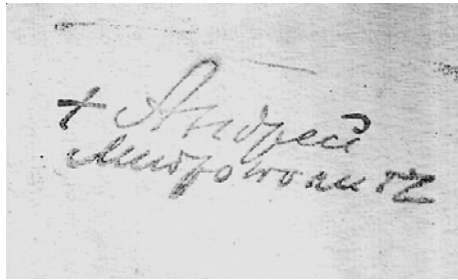 + Андрей
митрополитъ